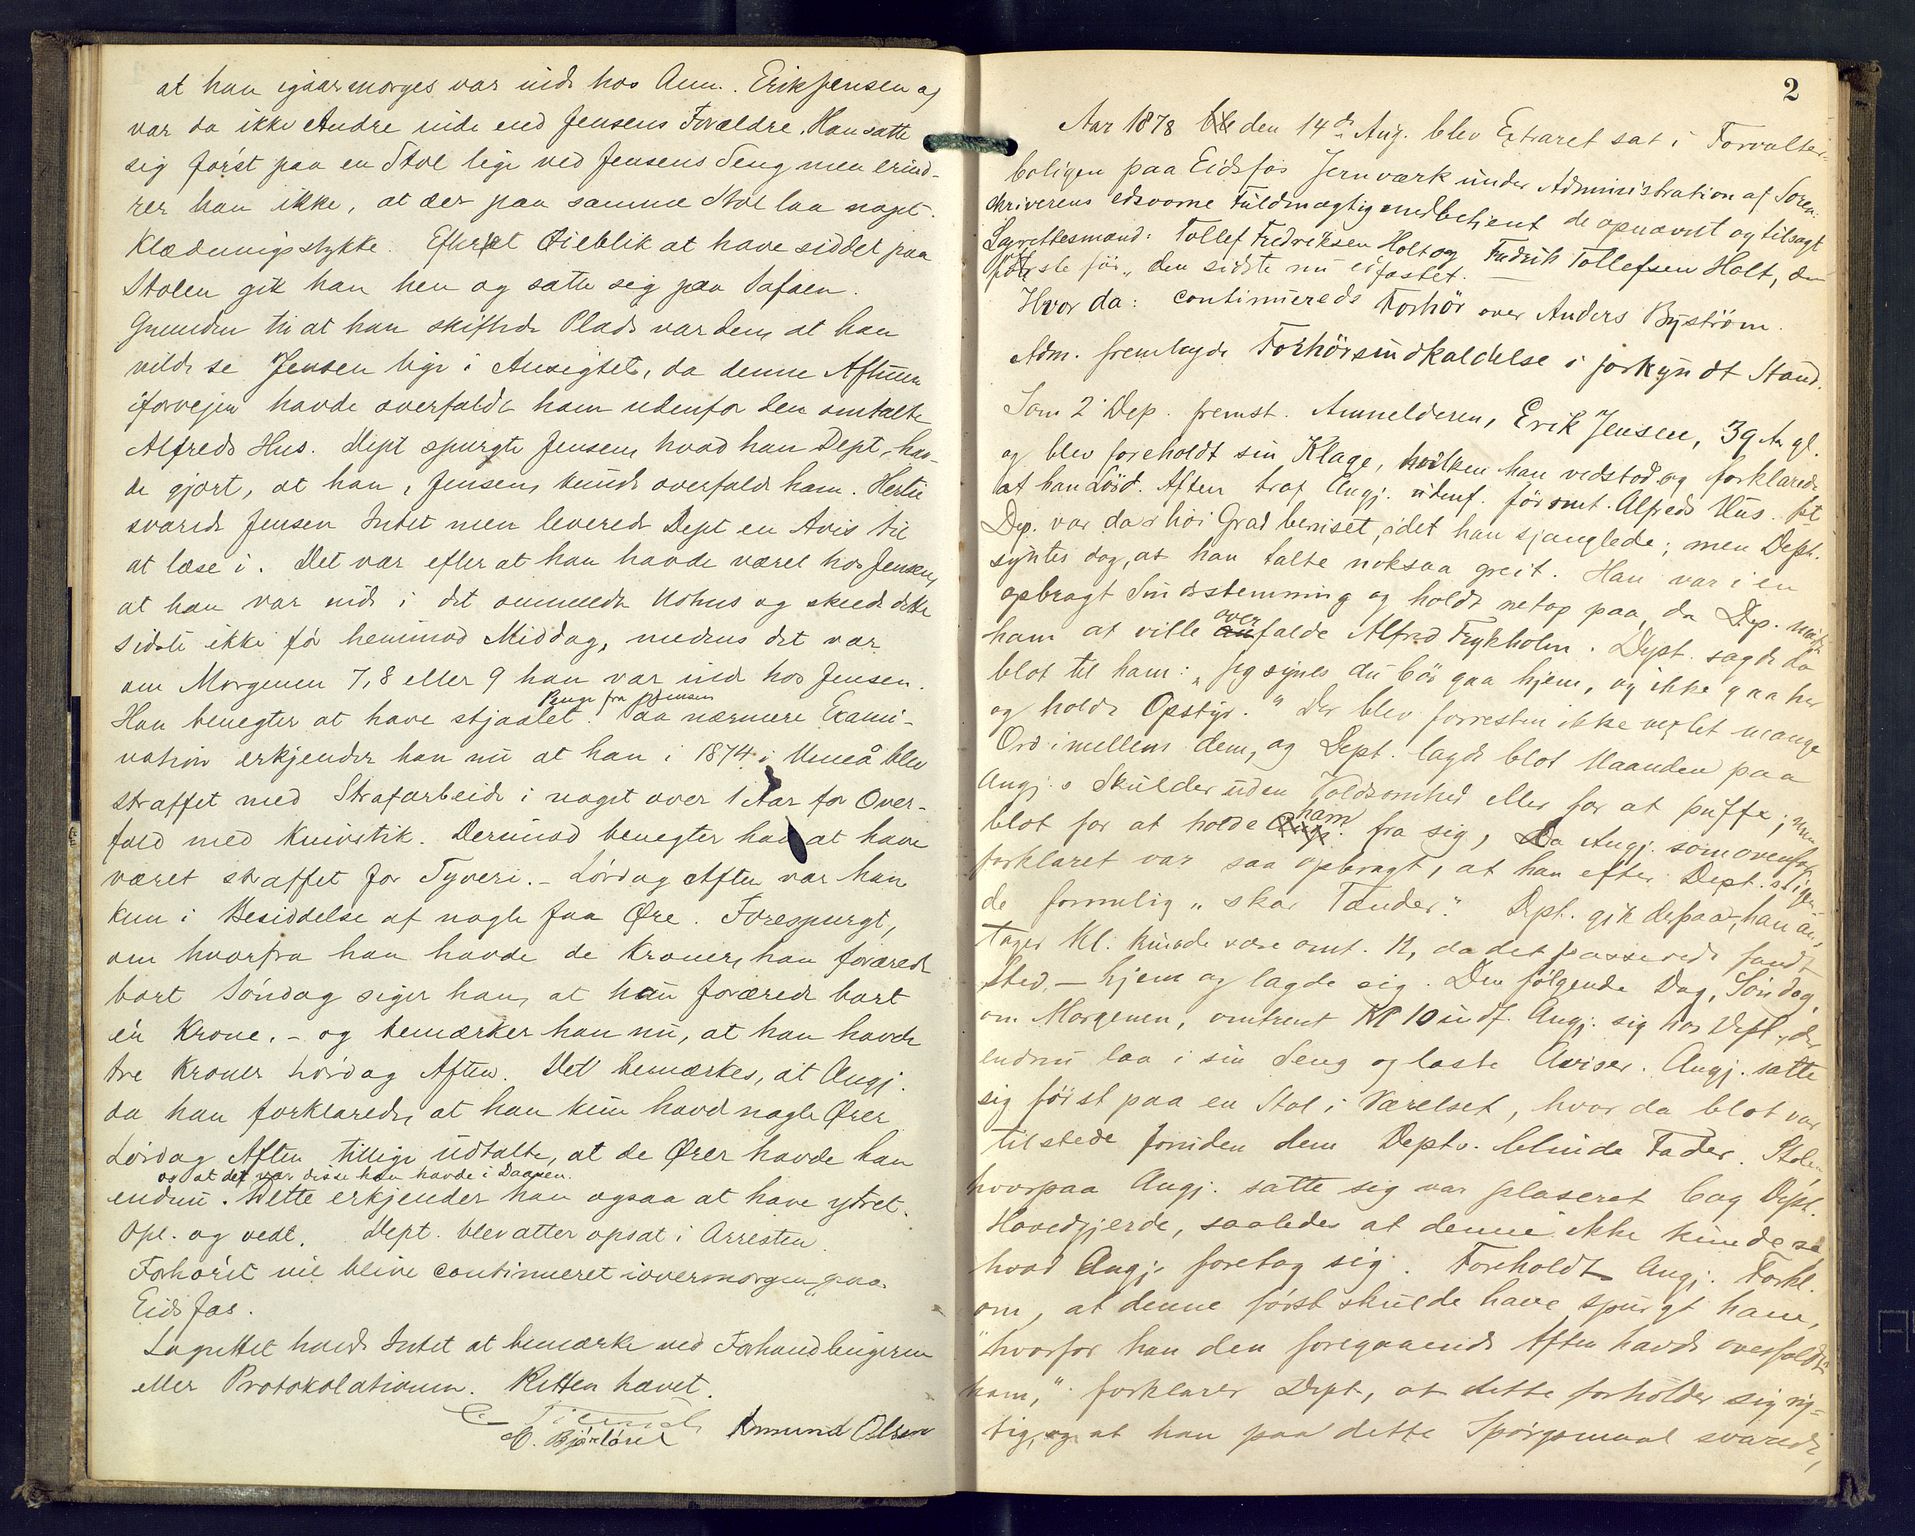 at han igaarmorges var inde hos Anm. Erik Jensen og
var da ikke Andre inde end Jensens Forældre. Han satte
sig først paa en Stol lige ved Jensens Seng men erind-
rer han ikke, at der paa samme Stol laa noget
Klædningsstykke. Efter et Øieblik at have siddet paa
Stolen gik han hen og satte sig paa Sofaen.
Grunden til at han skiftede Plads var den, at han
vilde se Jensen lige i Ansigtet, da denne Aftenen
iforvejen havde overfaldt ham udenfor den omtalte
Alfreds Hus. Dept spurgte Jensen, hvad han Dept, hav-
de gjort, at han, Jensen, kunde overfalde ham. Hertil
svarede Jensen Intet men leverede Dept en Avis til
at læse i. Det var efter at han havde været hos Jensen,
at han var inde i det anmeldte Udhus og skede dette
sidste ikke før henimod Middag, medens det var
om Morgenen 7, 8 eller 9 han var ind hos Jensen.
Penge fra Jensen
Han benegter at have stjaalet. Paa nærmere Exami-
nation erkjender han nu at han i 1874 i Umeå blev
straffet med Strafarbeide i noget over 1 Aar for Over-
fald med Knivstik. Derimod benegter han at have
været straffet for Tyveri. – Lørdag Aften var han
kun i Besiddelse af nogle faa Øre. Forespurgt,
om hvorfra han havde de Kroner, han forærede
bort Søndag siger han, at han forærede bort
én Krone. – og bemærker han nu, at han havde
tre Kroner Lørdag Aften. Det bemærkes, at Angj.
da han forklarede, at han kun havde nogle Ører
Lørdag Aften tillige udtalte, at de Ører havde han
og at det var disse han havde i Daasen.
endnu. Dette erkjender han ogsaa at have ytret.
Opl. og vedt. Dept. blev atter opsat i Arresten.
Forhøret vil blive continueret iovermorgen paa
Eidsfos.
Lagrettet havde Intet at bemærke ved Forhandlingerne
eller Protokolationen. Retten hævet.
Amund Olsen
2
Aar 1878 den 14de Aug. blev Extraret sat i Forvalter-
boligen paa Eidsfos Jernværk under Administration af Soren-
skriverens edsvorne Fuldmægtig med betjent de opnævnt og tilsagt
Lagrettesmænd: Tollef Fredriksen Holt og Fredrik Tollefsen Holt, den
første før, den sidste nu edfæstet. –
Hvor da: continueredes Forhør over Anders Byström.
Adm. fremlagde Forhørsindkaldelse i forkyndt Stand.
Som 2 Dep. fremst. Anmelderen, Erik Jensen, 39 Aar gl.
og blev foreholdt sin Klage, hvilken han vedstod og forklarede
at han Lørd. Aften traf Angj. udenf. føromt. Alfreds Hus.
Dep. var da i høi Grad beruset, idet han sjanglede; men Dept.
syntes dog, at han talte noksaa greit. Han var i en
opbragt Sindsstemning og holdt netop paa, da Dep. mødte
over
ham at ville falde Alfred Frykholm. Dept. sagde da
blot til ham: „Jeg synes du bør gaa hjem, og ikke gaa her
og holde Opstyr." Der blev forresten ikke vexlet mange
Ord imellem dem, og Dept. lagde blot Haanden paa
Angj.s Skulder uden Voldsomhed eller for at puffe; men
ham
blot for at holde fra sig, Da Angj. som ovenfor
forklaret var saa opbragt, at han efter Dept. sigen-
de formelig „skar Tænder". Dept. gik depaa, han an-
tager Kl. kunde være omt. 12, da det passerede fandt
Sted, – hjem og lagde sig. Den følgende Dag, Søndag,
om Morgenen, omtrent Kl 10 indf. Angj. sig hos Dept, der
endnu laa i sin Seng og læste Aviser. Angj. satte
sig først paa en Stol i Værelset, hvor da blot var
tilstede foruden dem Deptv. blinde Fader. Stolen
hvorpaa Angj. satte sig var plaseret bag Dept.
Hovedgjerde, saaledes at denne ikke kunde se
hvad Angj. foretog sig. Foreholdt Angj. Forkl.
om, at denne først skulde have spurgt ham,
„hvorfor han den foregaaende Aften havde overfaldt
ham," forklarer Dept, at dette forholder sig rig-
tig, og at han paa dette Spørgsmaal svarede,